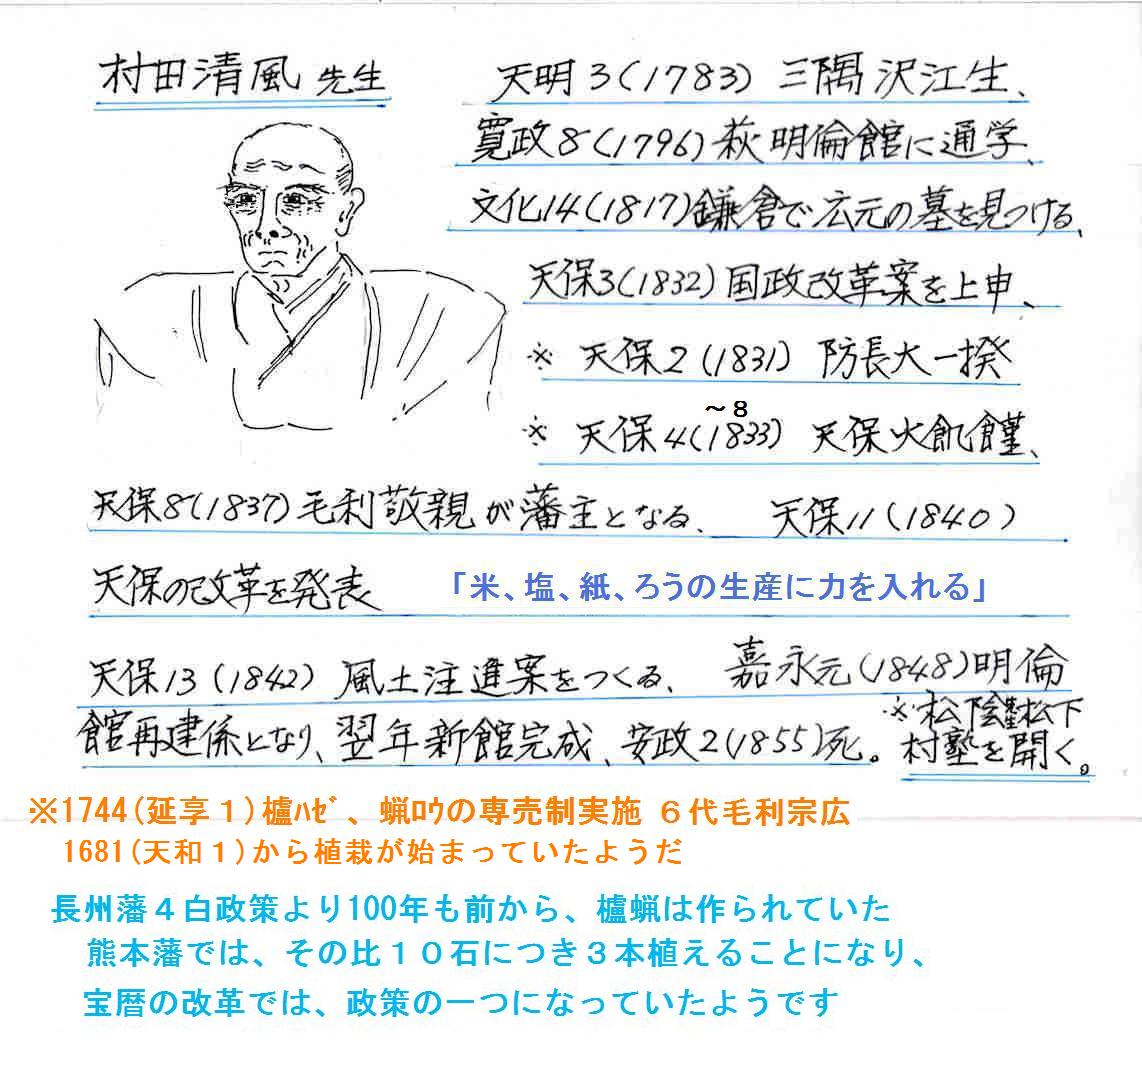 村田清風 先生
天明3(1783) 三隅 沢江生、
寛政8(1796) 萩 明倫館に通学、
文化14(1817)鎌倉で広元の墓を見つける、
天保3(1832) 国政改革案を上申、
※ 天保2(1831) 防長大一揆
～8
※ 天保4(1833) 天保大飢饉、
天保8(1837)毛利敬親が藩主となる、 天保11(1840)
天保の改革を発表 「米、塩、紙、ろうの生産に力を入れる」
天保13(1842) 風土注進案をつくる、 嘉永元(1848)明倫
館再建係となり、翌年新館完成、安政2(1855)死。
※松陰 松下
村塾を開く。
※1744(延享１)櫨ﾊｾﾞ、蝋ﾛｳの専売制実施 ６代毛利宗広
1681(天和１)から植栽が始まっていたようだ
長州藩４白政策より100年も前から、櫨蝋は作られていた
熊本藩では、その比１０石につき３本植えることになり、
宝暦の改革では、政策の一つになっていたようです